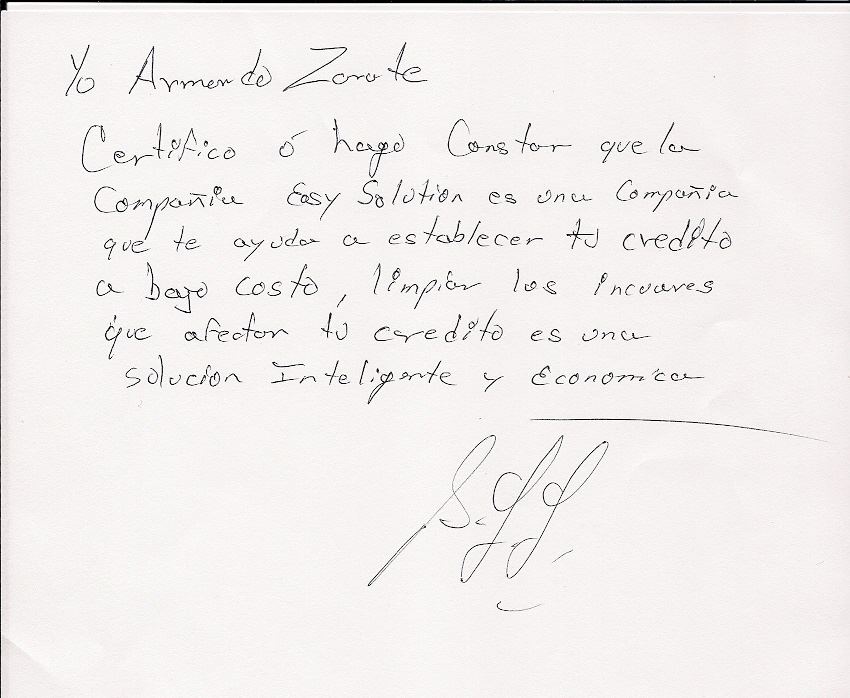 Yo Armando Zarate
Certifico ó hago Constar que la
Compañia Easy Solution es una Compañia
que te ayuda a establecer tu credito
a bajo costo, limpiar los
que afectan tu credito es una
solucion Inteligente y Economica